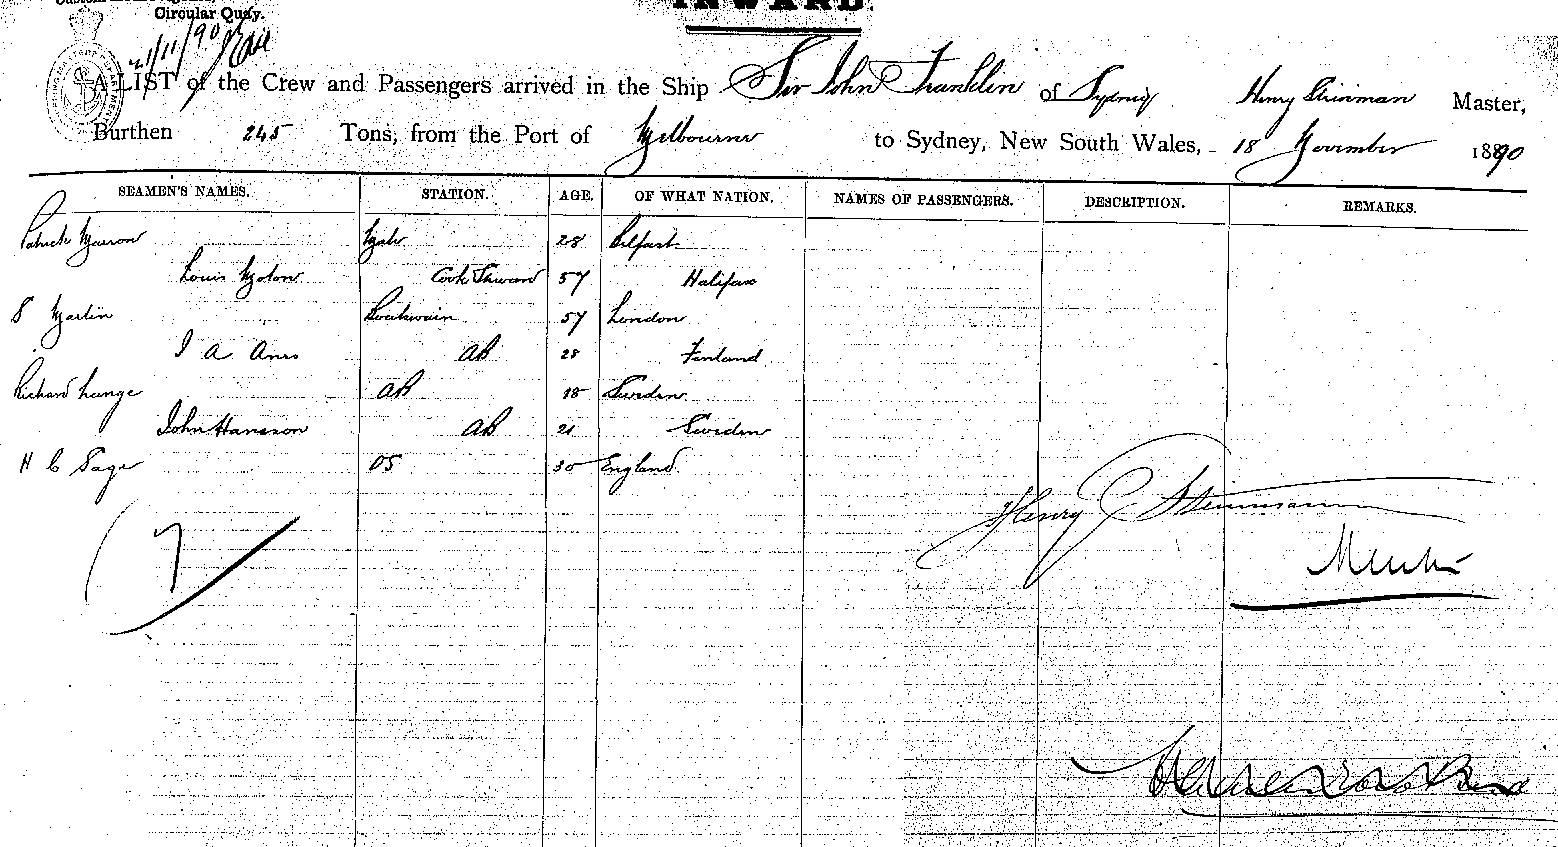 Circular Quay.
INWARD.
21/11/90
A LIST of the Crew and Passengers arrived in the Ship Sir John Franklin of Sydney Henry Steinman Master,
Burthen 245 Tons, from the Port of Melbourne to Sydney, New South Wales, 18 November 1890
SEAMEN'S NAMES. STATION. AGE. OF WHAT NATION. NAMES OF PASSENGERS. DESCRIPTION. REMARKS.
Patrick Mate 28 Belfast
Louis Cook Steward 57 Halifax
S Martin Boatswain 57 London
I A AB 28 Finland
Richard Lange AB 18 Sweden
John Hansson AB 21 Sweden
H C Sage OS 30 England
Henry Steinmann
7
Master